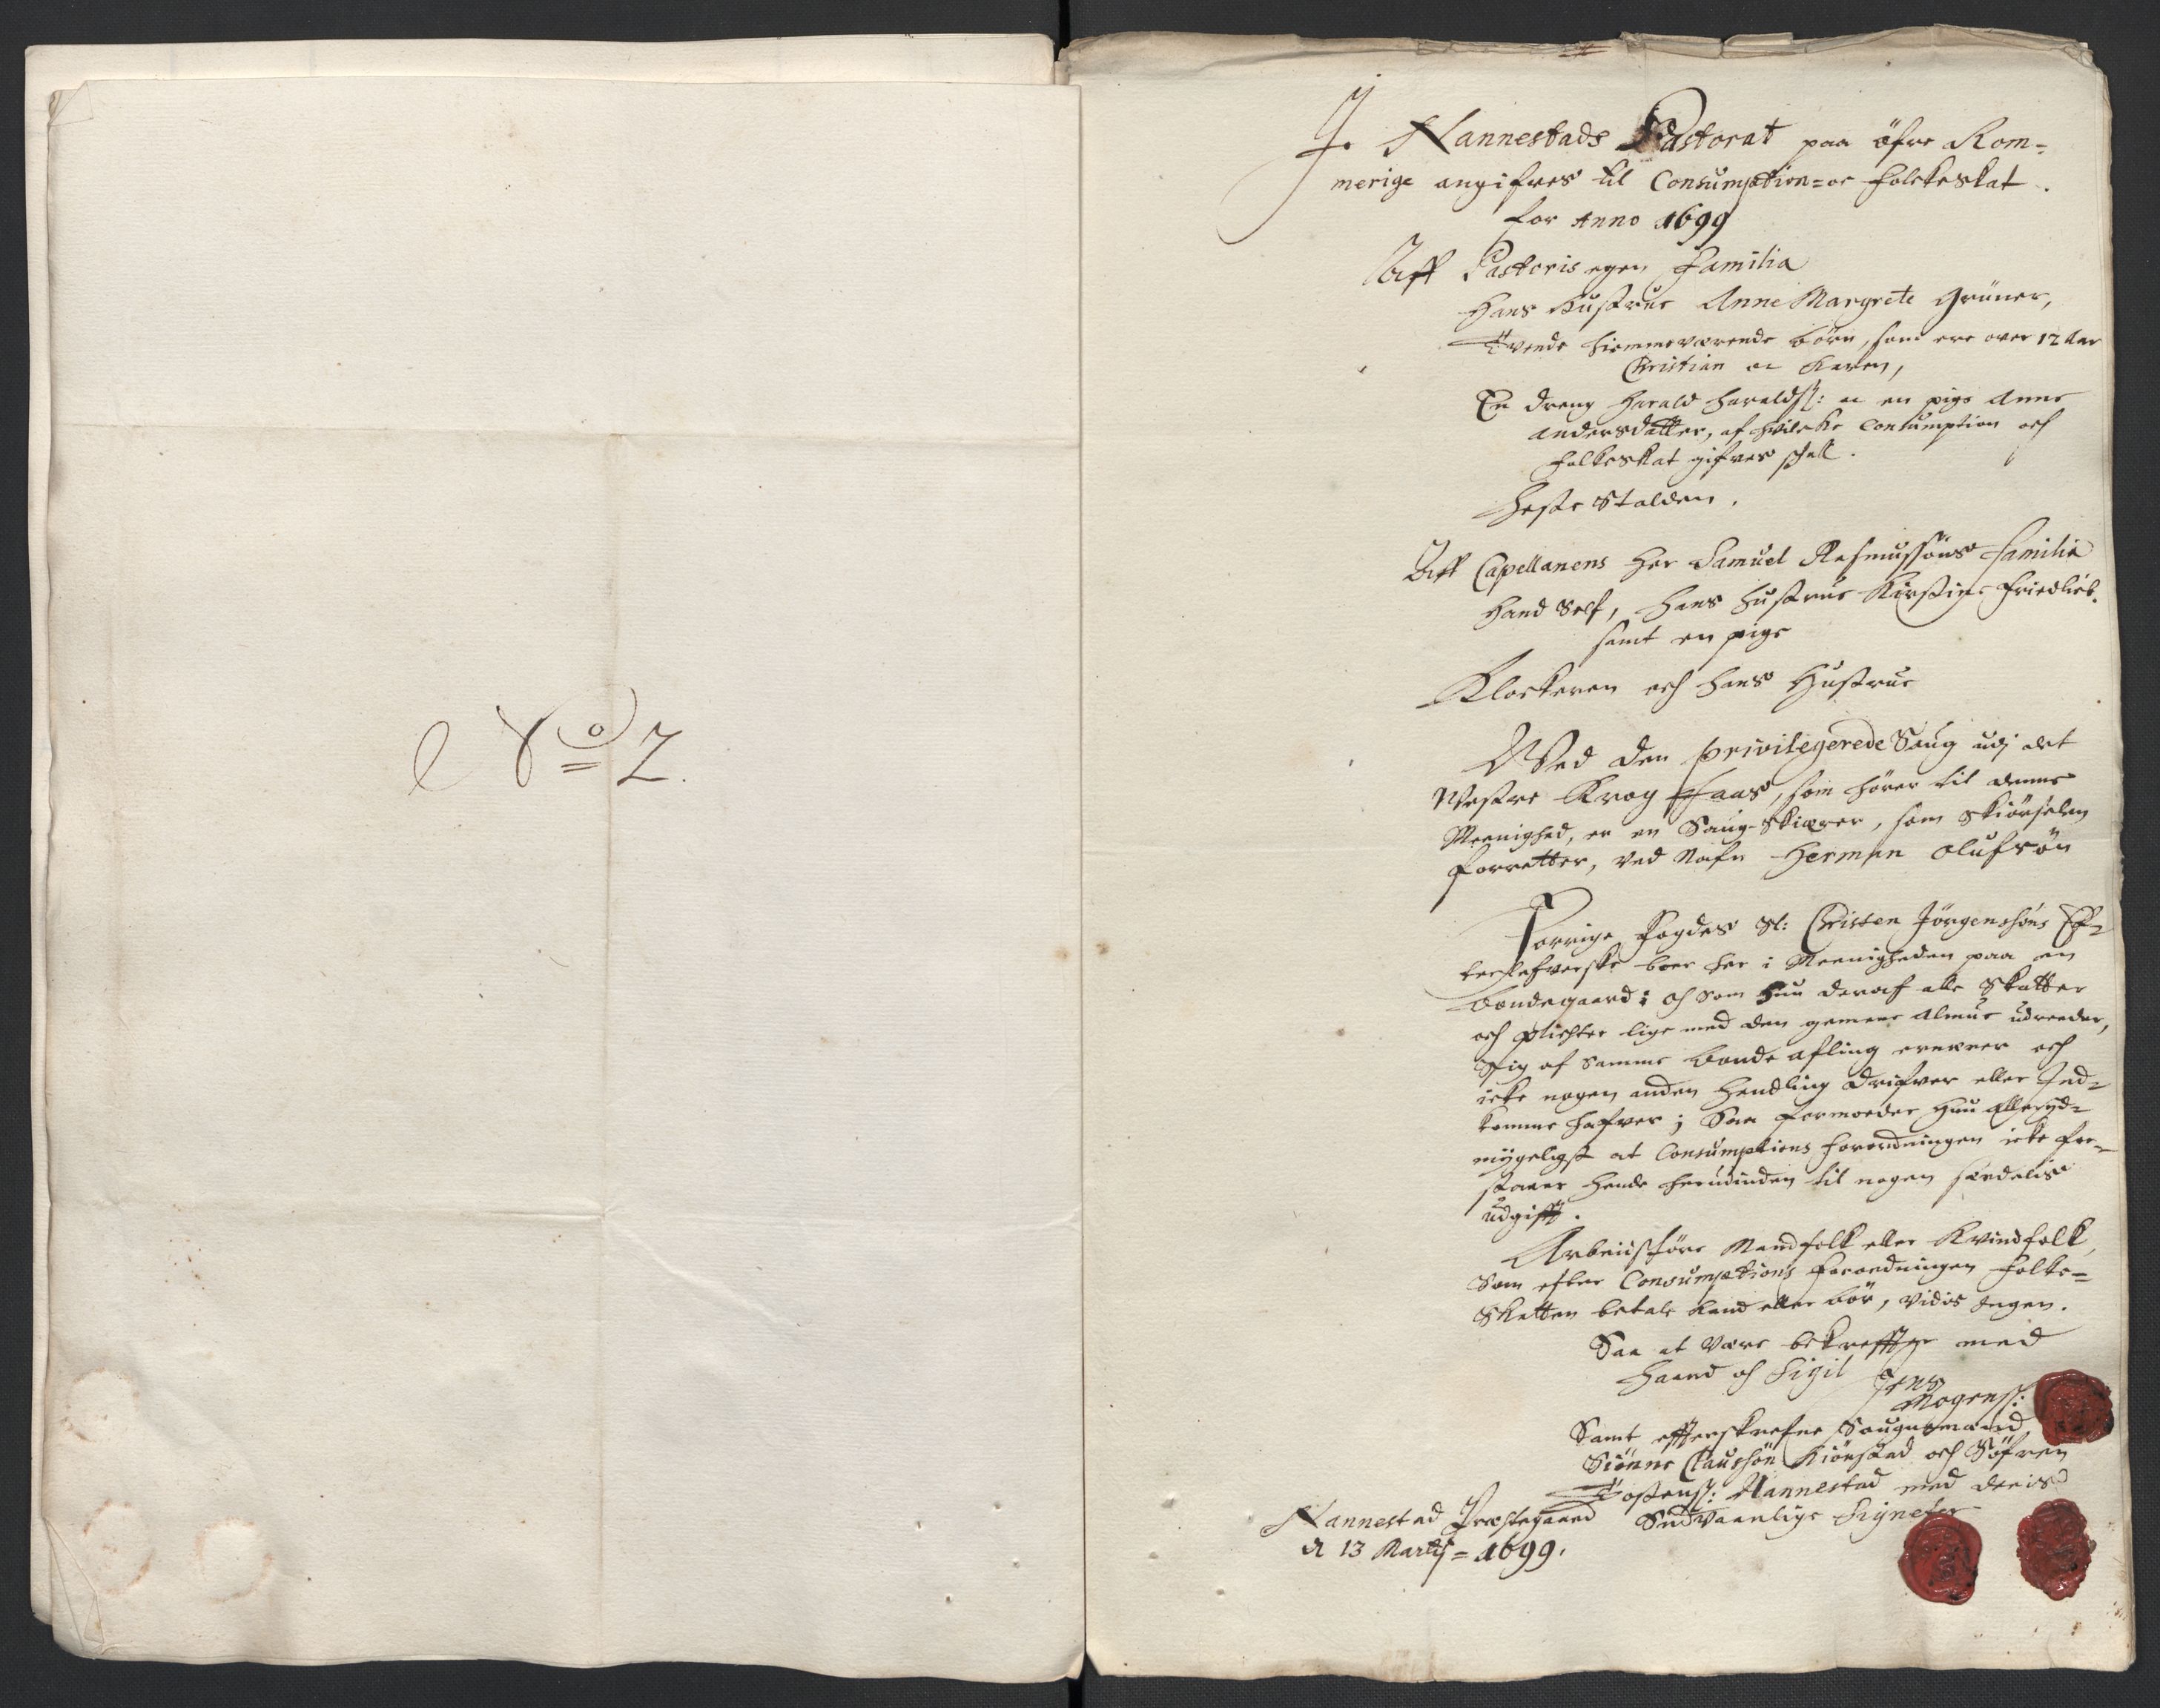 No 2.
I Nannestads Pastorat paa öfre Rom=
merige angifves til Consumption= oc folckeskat.
for Anno 1699
Aff Pastoris egen Familia
Hans Hustrue Anne Margrete Grüner,
Tvende hiemmeværende börn, som ere over 12 Aar
Christian oc Karen,
En dreng Harald Haraldss: oc en pige Anne
Andersdatter, af hvilcke Consumption och
folkeskat gifves skal.
Heste Stalden.
Aff Capellanens Her Samuel Rasmussöns Familia
Hand Self, hans hustrue Kirstine Friedlieb.
samt en pige
Klockeren och hans Hustrue
Ved den privilegerede Saug udj det
Vestre Krog Haas, som hörer til denne
Meenighed, er en Saug-Skiærer, som Skiörselen
forretter, ved Nafn Herman Olufsön
Forrige Fogdes Sl: Christen Jörgensöns Ef=
terlefverske boer her i Meenigheden paa en
bondegaard; Og som hun deraf alle Skatter
och plichter lige med den gemene Almue udreeder,
Sig af samme bonde afling ernærer och
icke nogen anden Handling drifver eller Ind=
komme hafver; Saa formoder hun alleryd=
mygeligst at Consumptions forordningen icke for=
staaer hende herudinden til nogen særdelis
udgifft.
Arbeidsföre Mandfolk eller Kvindfolk,
Som efter Consumptions forordningen folke=
Skatten betale kand eller bör, vidis Ingen.
Saa at være bekreffter med
Haand og Sigil Jens
Mogenss:
Samt effterskrefne Saugnemænd
Siönne Claussön Kiönstad och Söfren
Tostenss: Nannestad med deris
Sædvaanlige Signeter
Nannestad Præstegaard
d 13 Martij = 1699.